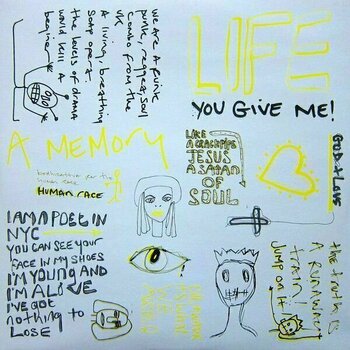 We are a funk
punk, reggae, soul
combo from the
UK
A living, breathing
soap opera
the levels of drama
would kill a
beginner
LIFE
YOU GIVE ME!
A MEMORY
HUMAN RACE
LIKE
A CRACKPIPE
JESUS
A SATAN
OF
SOUL
GOD + LOVE
I AM A POET IN
NYC
YOU CAN SEE YOUR
FACE IN MY SHOES
I'M YOUNG AND
I'M ALIVE
I'VE GOT
nothing to
LOSE
the truth is
A RUNAWAY
TRAIN!
JUMP ON IT!